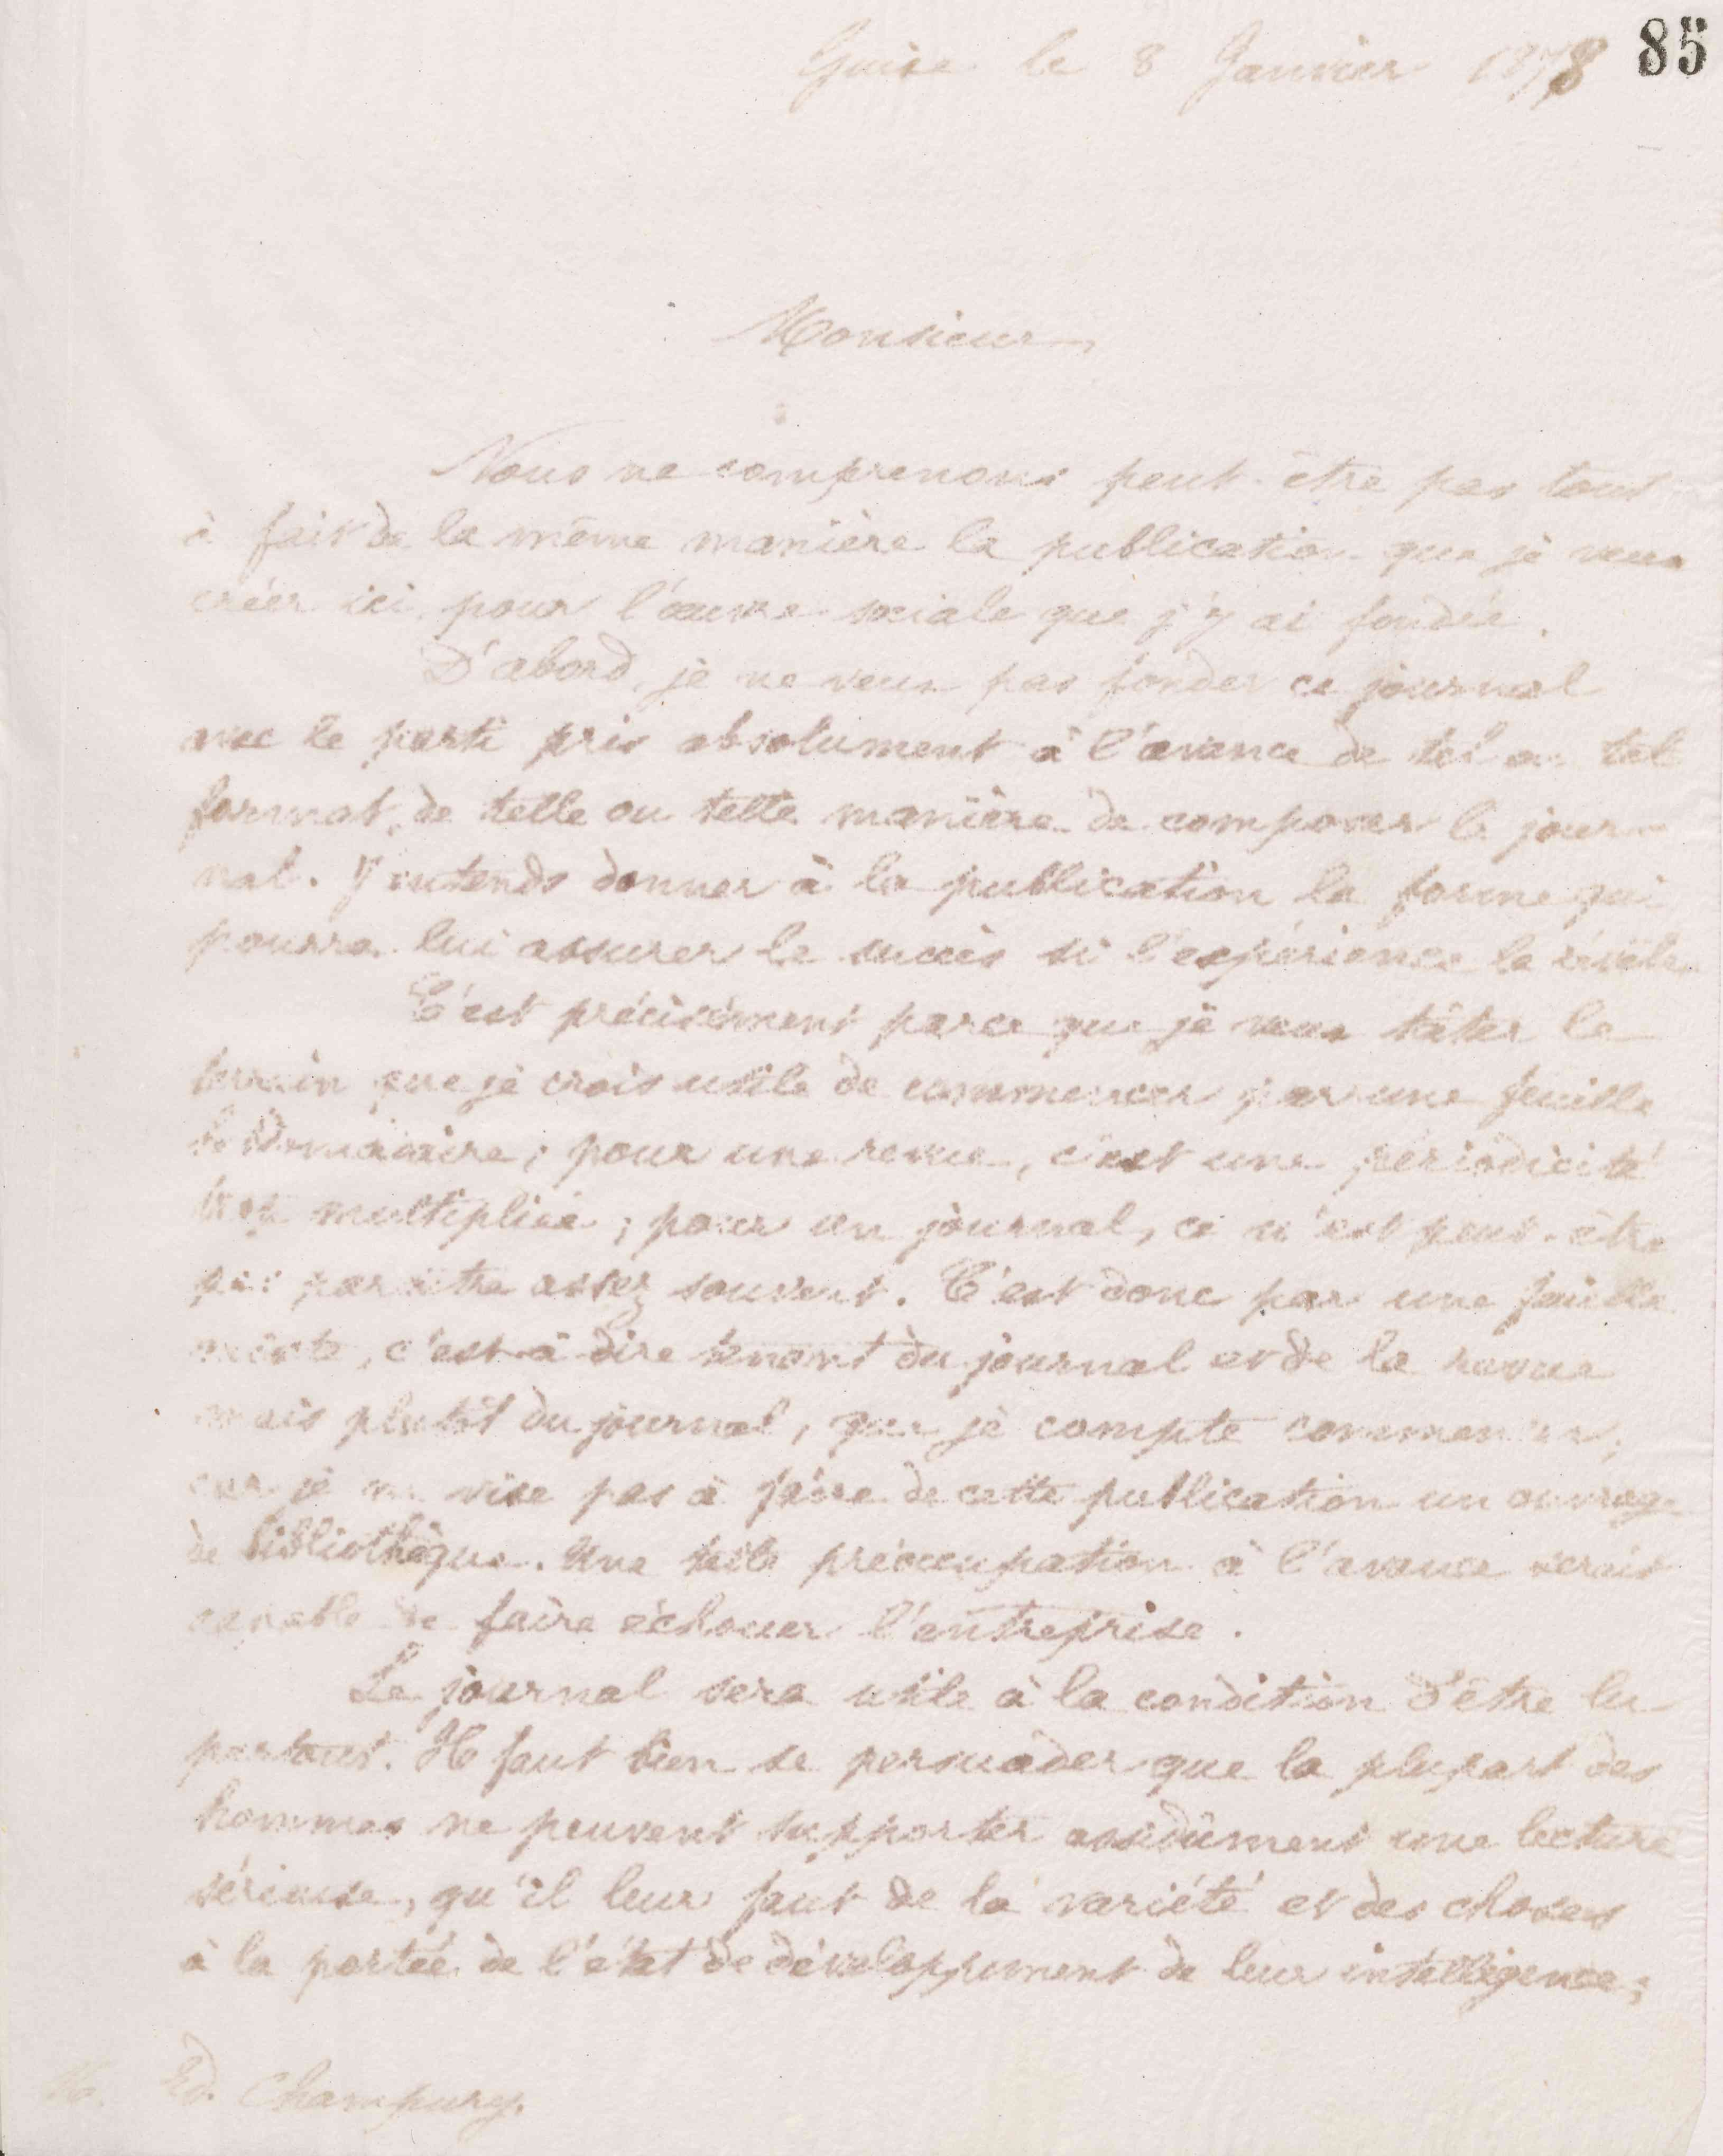 85
Guise le 8 Janvier 1878
Monsieur,
Nous ne comprenons peut-être pas tout
à fait de la même manière la publication que je veux
créer ici pour l'œuvre sociale que j'y ai fondée.
D'abord, je ne veux pas fonder ce journal
avec le parti pris absolument à l'avance de tel ou tel
format, de telle ou telle manière de composer le jour-
nal. J'entends donner à la publication la forme qui
pourra lui assurer le succès si l'expérience la révèle.
C'est précisément parce que je veux tâter le
terrain que je crois utile de commencer par une feuille
hebdomadaire ; pour une revue, c'est une périodicité
trop multipliée ; pour un journal, ce n'est peut-être
pas paraître assez souvent. C'est donc par une feuille
mixte, c'est-à-dire tenant du journal et de la revue
mais plutôt du journal, que je compte commencer,
car je ne vise pas à faire de cette publication un ouvrage
de bibliothèque. Une telle préoccupation à l'avance serait
capable de faire échouer l'entreprise.
Le journal sera utile à la condition d'être lu
partout. Il faut bien se persuader que la plupart des
hommes ne peuvent supporter assidûment une lecture
sérieuse, qu'il leur faut de la variété et des choses
à la portée de l'état de développement de leur intelligence ;
M. Ed. Champury.